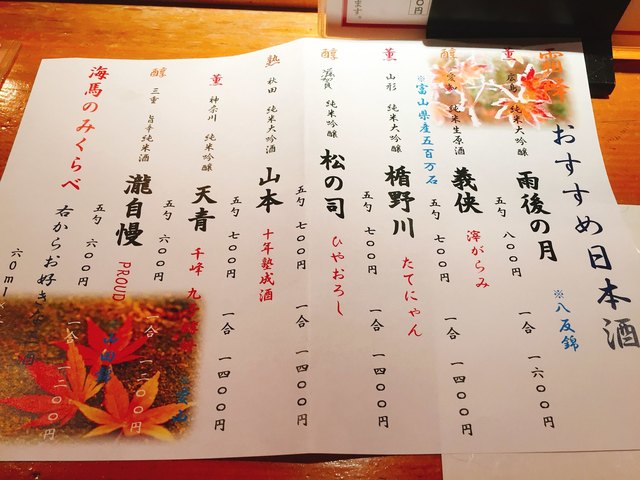 おすすめ日本酒
薫
広島 純米大吟醸
雨後の月
※八反錦
五勺 八〇〇円
一合 一六〇〇円
醇
愛知 純米生原酒
義侠
滓がらみ
※富山県産五百万石
五勺 七〇〇円
一合 一四〇〇円
薫
山形 純米大吟醸
楯野川
たてにゃん
五勺 七〇〇円
一合 一四〇〇円
醇
滋賀 純米吟醸
松の司
ひやおろし
五勺 七〇〇円
一合 一四〇〇円
熟
秋田 純米大吟酒
山本
十年塾成酒
五勺 七〇〇円
一合 一四〇〇円
薫
神奈川 純米吟醸
天青
千峰
五勺 七〇〇円
一合 一四〇〇円
醇
三重 旨辛純米酒
瀧自慢
PROUD
五勺 六〇〇円
一合 一二〇〇円
海馬のみくらべ
右からお好きな
60ml